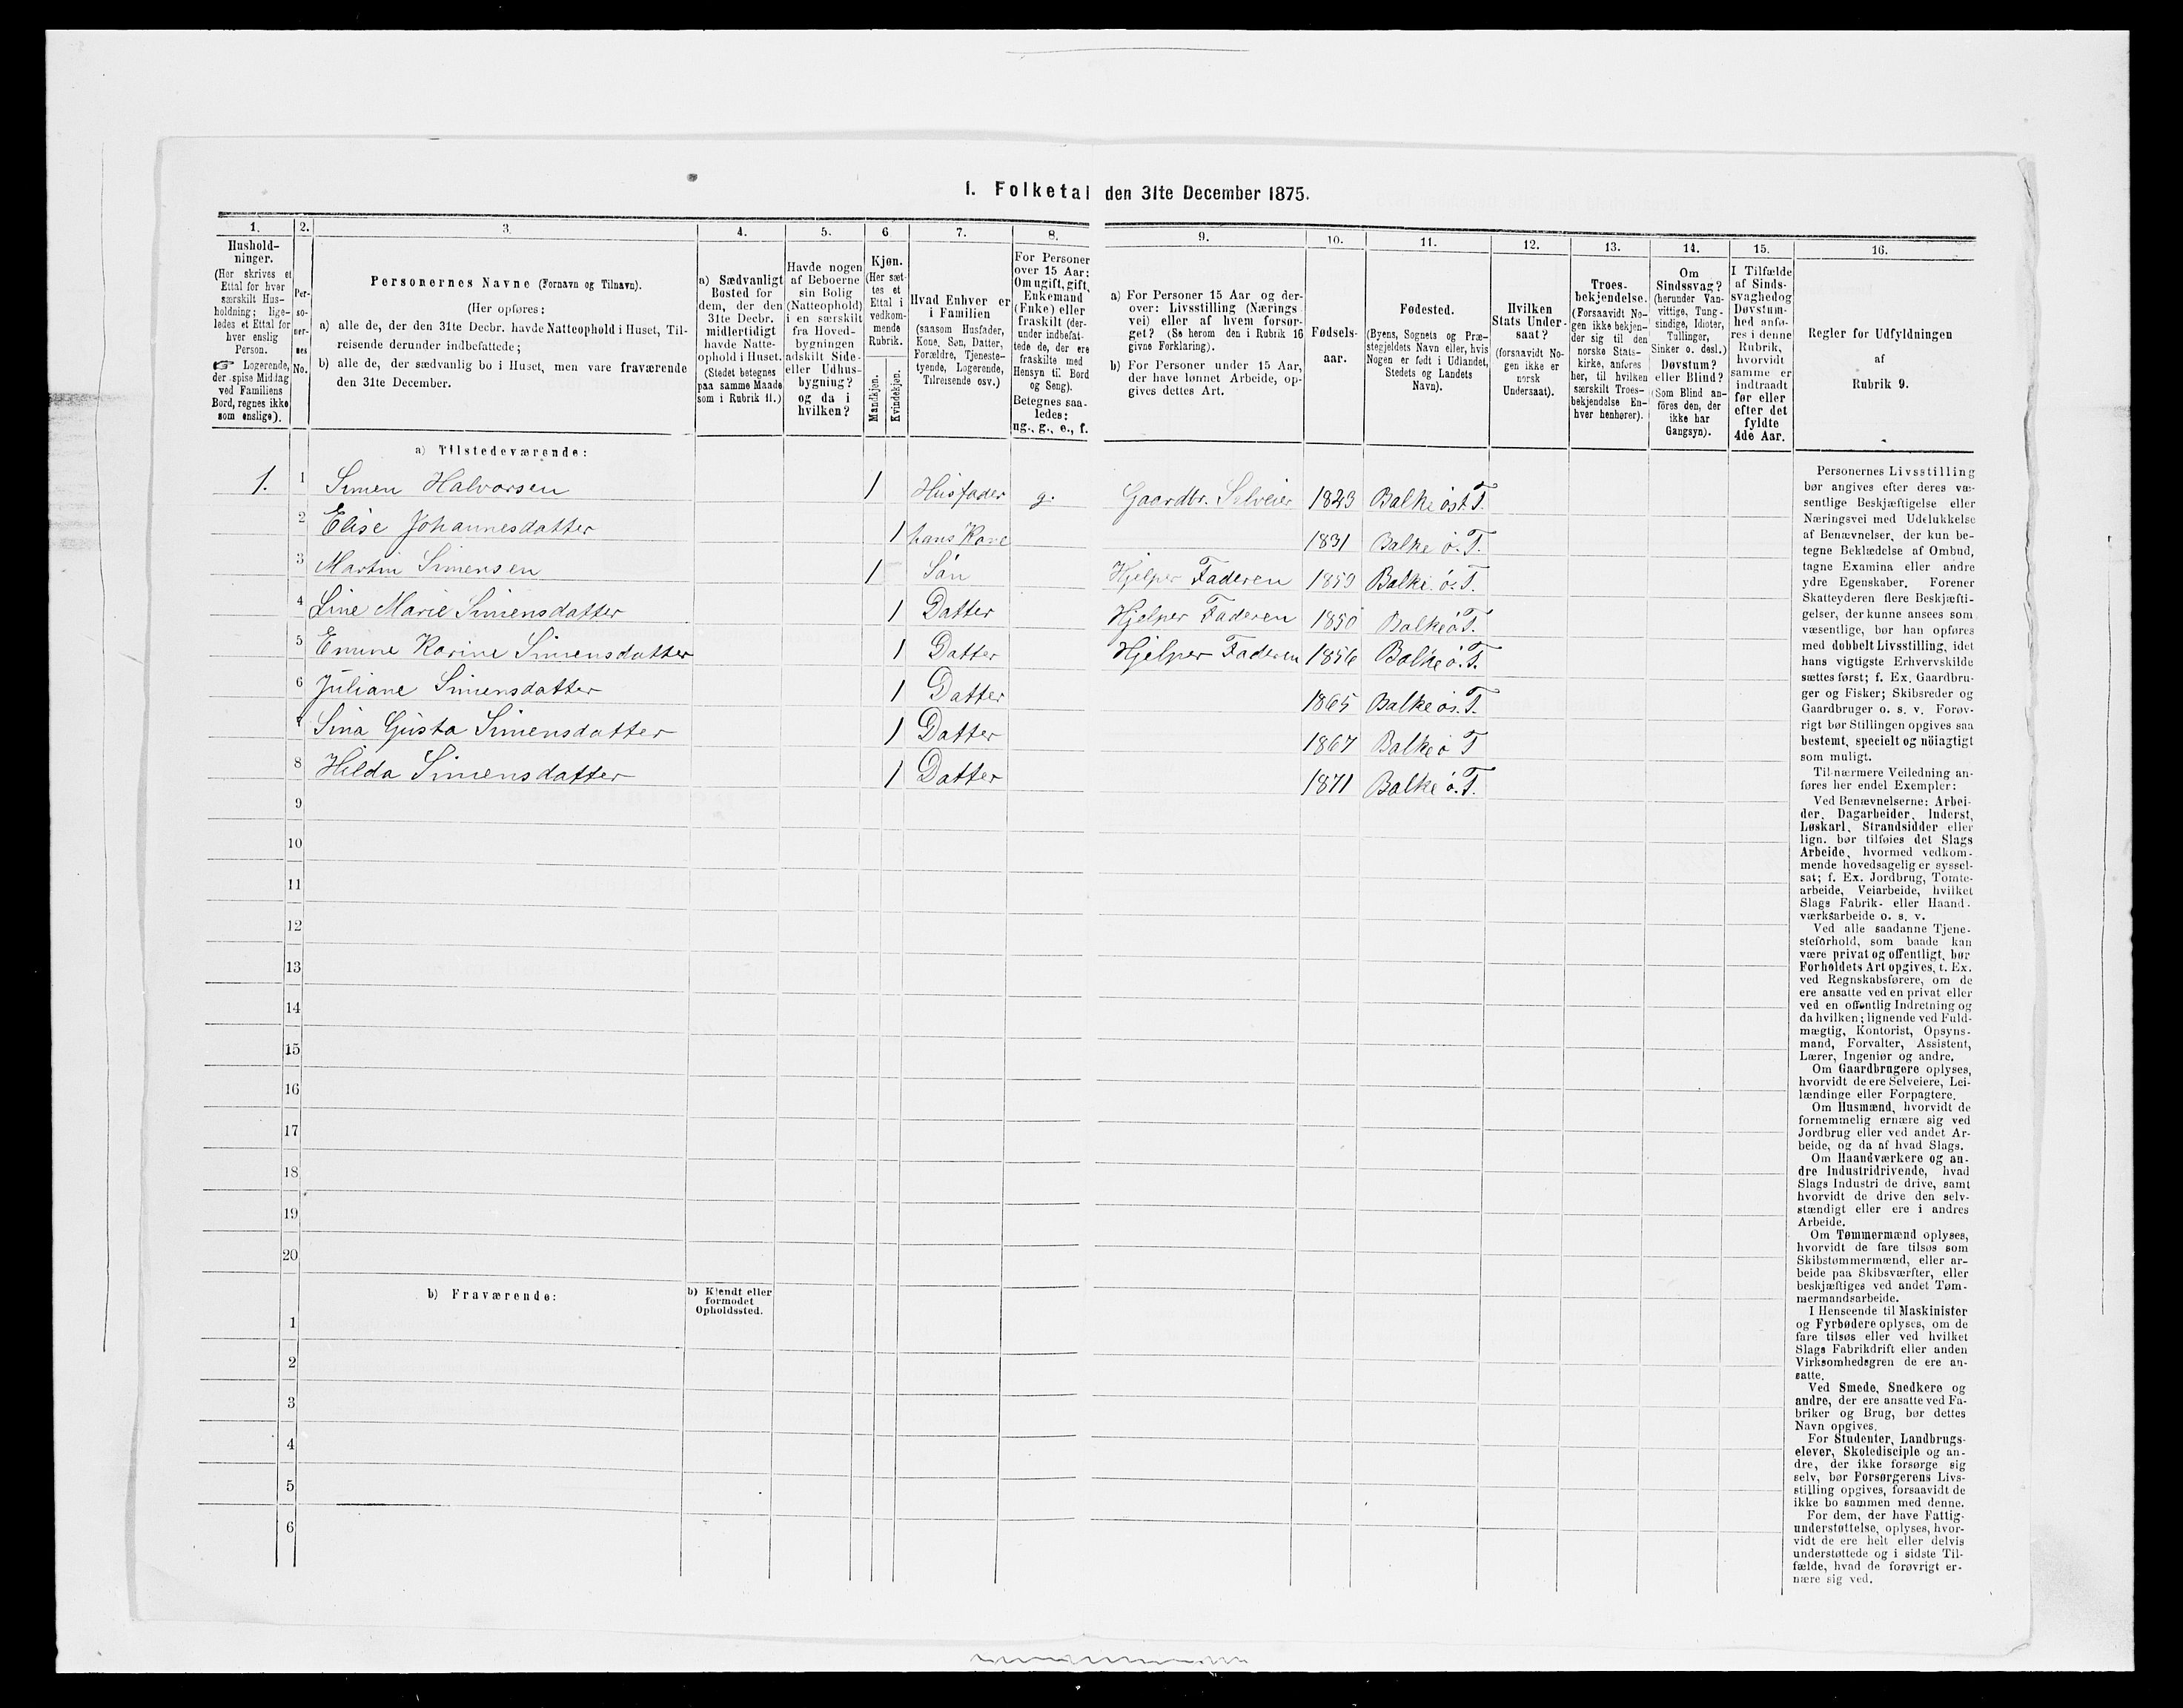 1. Folketal den 31te December 1875.
1. 2. 3. 4. 5. 6 7. 8. 9. 10. 11. 12. 13. 14. 15. 16.
Hushold-
ninger.
(Her skrives et
Ettal for hver
særskilt Hus-
holdning; lige-
ledes et Ettal for
hver enslig
Person.
☞ Logerende,
der spise Middag
ved Familiens
Bord, regnes ikke
som enslige).
Per-
so-
ner-
nes
No.
Personernes Navne (Fornavn og Tilnavn).
(Her opføres:
a) alle de, der den 31te Decbr. havde Natteophold i Huset, Til-
reisende derunder indbefattede;
b) alle de, der sædvanlig bo i Huset, men vare fraværende
den 31te December.
a) Sædvanligt
Bosted for
dem, der den
31te Decbr.
midlertidigt
havde Natte-
ophold i Huset.
(Stedet betegnes
paa samme Maade
som i Rubrik 11.)
Havde nogen
af Beboerne
sin Bolig
(Natteophold)
i en særskilt
fra Hoved-
bygningen
adskilt Side-
eller Udhus-
bygning?
og da i
hvilken?
Kjøn.
(Her sæt-
tes et
Ettal i
vedkom-
mende
Rubrik.
Mandkjøn.
Kvindekjøn.
Hvad Enhver er
i Familien
(saasom Husfader,
Kone, Søn, Datter,
Forældre, Tjeneste-
tyende, Logerende,
Tilreisende osv.)
For Personer
over 15 Aar:
Om ugift, gift,
Enkemand
(Enke) eller
fraskilt (der-
under indbefat-
tede de, der ere
fraskilte med
Hensyn til Bord
og Seng).
Betegnes saa-
ledes:
ug., g., e., f.
a) For Personer 15 Aar og der-
over: Livsstilling (Nærings-
vei) eller af hvem forsør-
get? (Se herom den i Rubrik 16
givne Forklaring).
b) For Personer under 15 Aar,
der have lønnet Arbeide, op-
gives dettes Art.
Fødsels-
aar.
Fødested.
(Byens, Sognets og Præ-
stegjeldets Navn eller, hvis
Nogen er født i Udlandet,
Stedets og Landets
Navn).
Hvilken
Stats Under-
saat?
(forsaavidt No-
gen ikke er
norsk
Undersaat).
Troes-
bekjendelse.
(Forsaavidt No-
gen ikke bekjen-
der sig til den
norske Stats-
kirke, anføres
her, til hvilken
særskilt Troes-
bekjendelse En-
hver henhører).
Om
Sindssvag?
(herunder Van-
vittige, Tung-
sindige, Idioter,
Tullinger,
Sinker o. desl.)
Døvstum?
eller Blind?
(Som Blind an-
föres den, der
ikke har
Gangsyn).
I Tilfælde
af Sinds-
svaghed og
Døvstum-
hed anfø-
res i denne
Rubrik,
hvorvidt
samme er
indtraadt
før eller
efter det
fyldte
4de Aar.
Regler for Udfyldningen
af
Rubrik 9.
a) Tilstedeværende:
1. 1 Simen Halvorsen 1 Husfader g. Gaardbr. Selveier 1823 Balke øst. T.
2 Elise Johannesdatter 1 hans Kone 1831 Balke ö. T.
3 Martin Simensen 1 Søn Hjelper Faderen 1859 Balke. ös. T.
4 Line Marie Simensdatter 1 Datter Hjelper Faderen 1850 Balke ö T.
5 Emine Karine Simensdatter 1 Datter Hjelper Faderen 1856 Balke ö. T.
6 Juliane Simensdatter 1 Datter 1865 Balke ös. T.
7 Sina Gusta Simensdatter 1 Datter 1867 Balke ö T
8 Hilda Simensdatter 1 Datter 1871 Balke ö. T.
9
10
11
12
13
14
15
16
17
18
19
20
b) Fraværende:
b) Kjendt eller
formodet
Opholdssted.
1
2
3
4
5
6
Personernes Livsstilling
bør angives efter deres væ-
sentlige Beskjæftigelse eller
Næringsvei med Udelukkelse
af Benævnelser, der kun be-
tegne Beklædelse af Ombud,
tagne Examina eller andre
ydre Egenskaber. Forener
Skatteyderen flere Beskjæfti-
gelser, der kunne ansees som
væsentlige, bør han opføres
med dobbelt Livsstilling, idet
hans vigtigste Erhvervskilde
sættes først; f. Ex. Gaardbru-
ger og Fisker; Skibsreder og
Gaardbruger o. s. v. Forøv-
rigt bør Stillingen opgives saa
bestemt, specielt og nöiagtigt
som muligt.
Til nærmere Veiledning an-
føres her endel Exempler:
Ved Benævnelserne: Arbei-
der, Dagarbeider, Inderst,
Løskarl, Strandsidder eller
lign. bør tilføies det Slags
Arbeide, hvormed vedkom-
mende hovedsagelig er syssel-
sat; f. Ex. Jordbrug, Tomte-
arbeide, Veiarbeide, hvilket
Slags Fabrik- eller Haand-
værksarbeide o. s. v.
Ved alle saadanne Tjene-
steforhold, som baade kan
være privat og offentligt, bør
Forholdets Art opgives, t. Ex.
ved Regnskabsførere, om de
ere ansatte ved en privat eller
ved en offentlig Indretning og
da hvilken; lignende ved Fuld-
mægtig, Kontorist, Opsyns-
mand, Forvalter, Assistent,
Lærer, Ingeniør og andre.
Om Gaardbrugere oplyses,
hvorvidt de ere Selveiere, Lei-
lændinge eller Forpagtere.
Om Husmænd, hvorvidt de
fornemmelig ernære sig ved
Jordbrug eller ved andet Ar-
beide, og da af hvad Slags.
Om Haandværkere og an-
dre Industridrivende, hvad
Slags Industri de drive, samt
hvorvidt de drive den selv-
stændigt eller ere i andres
Arbeide.
Om Tømmermænd oplyses,
hvorvidt de fare tilsøs som
Skibstømmermænd, eller ar-
beide paa Skibsværfter, eller
beskjæftiges ved andet Tøm-
mermandsarbeide.
I Henseende til Maskinister
og Fyrbødere oplyses, om de
fare tilsøs eller ved hvilket
Slags Fabrikdrift eller anden
Virksomhedsgren de ere an-
satte.
Ved Smede, Snedkere og
andre, der ere ansatte ved Fa-
briker og Brug, bør dettes
Navn opgives.
For Studenter, Landbrugs-
elever, Skoledisciple og an-
dre, der ikke forsørge sig
selv, bør Forsørgerens Livs-
stilling opgives, forsaavidt de
ikke bo sammen med denne.
For dem, der have Fattig-
understøttelse, oplyses, hvor-
vidt de ere helt eller delvis
understøttede og i sidste Til-
fælde, hvad de forøvrigt er-
nære sig ved.